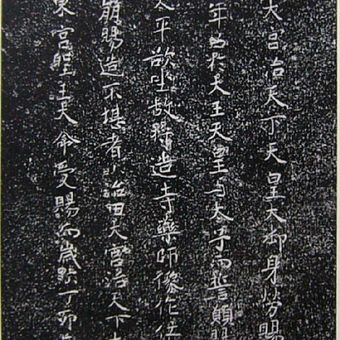 大宮治天下天皇大御身勞賜
年召於大王天皇与太子而誓願賜
太平欲坐故将造寺藥師像作仕
崩賜造不堪者小治田大宮治天下大
東宮聖王大命受賜而歳次丁卯年